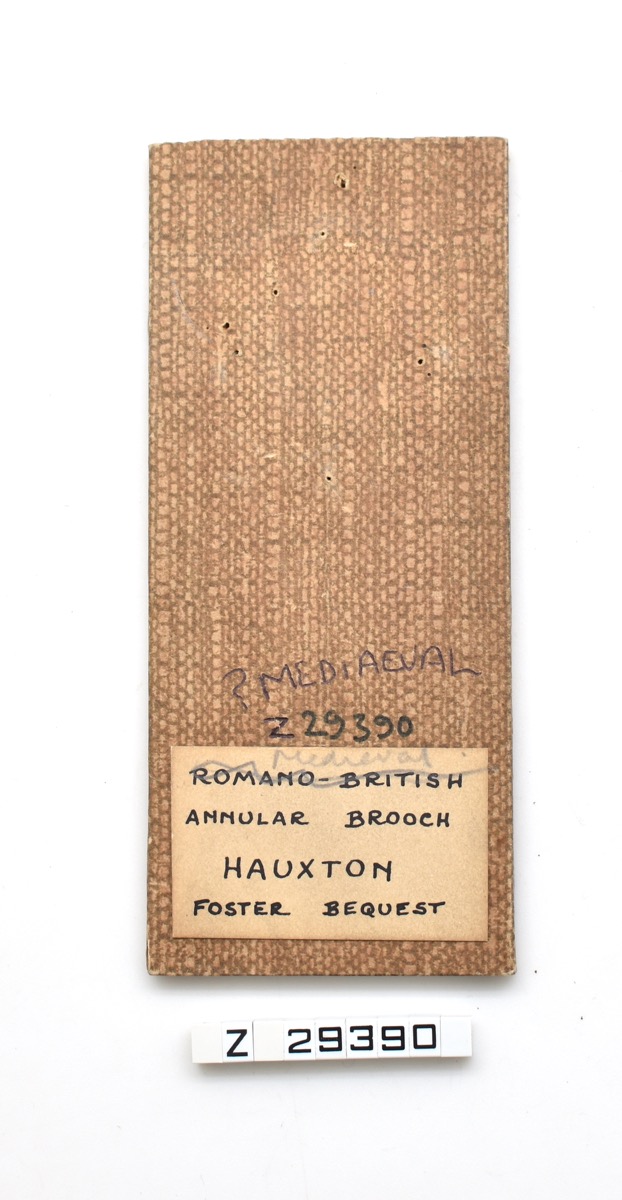 ? MEDIAEVAL
Z 29390
Medieval
ROMANO-BRITISH
ANNULAR BROOCH
HAUXTON
FOSTER BEQUEST
Z 29390